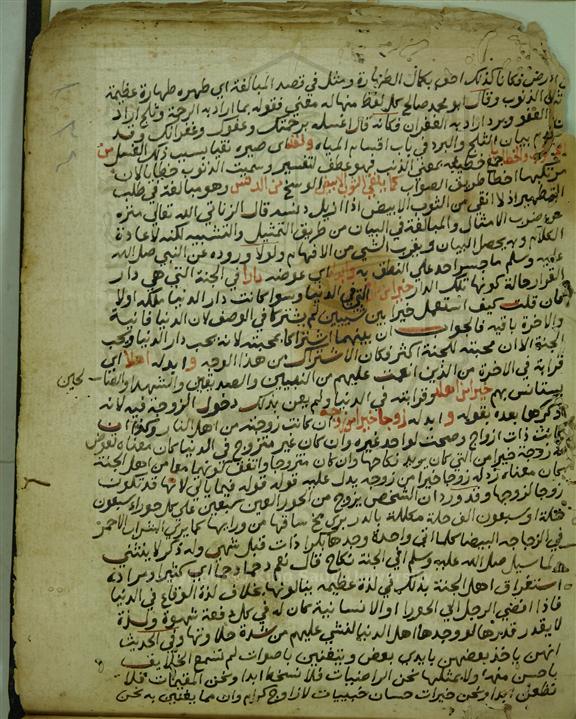 الارض فكانا كذلك احق بكمال الطهارة ومثل في قصد المبالغة اي طهره طهارة عظيمة
الذنوب وقال ابو محمد صالح كل لفظ منها له معني فقوله بما اراد به الرحمة وثلج اراد
العفو وبرد اراد به الغفران فكانه قال اغسله برحمتك وعفوك وغفرانك وقد
بيان الثلج والبرد في باب اقسام المياه ونقه اي صيره نقيا بسبب ذلك الغسل من
والخطايا جمع خطيئة بمعني الذنب فهو عطف تفسير وسميت الذنوب خطايا لان
مرتكبها اخطا طريق الصواب كما ينقي الثوب الابيض الوسخ من الدنس وهو مبالغة في طلب
التطهير اذ لا انقي من الثوب الابيض اذا ازيل دنسه قال الزناتي الله تعالي منزه
عن ضروب الامثال والمبالغة في البيان من طريق التمثيل والتشبيه لكنه لاعادة
الكلام وبه يحصل البيان ويقرب الشي من الافهام ولولا وروده عن النبي صلي الله
عليه وسلم ما جسر احد علي النطق به وابدله اي عوضه دارا في الجنة التي هي دار
القرار حالة كونها تلك الدار خيرا من داره التي في الدنيا وسوا كانت دار الدنيا ملكه اولا
فان قلت كيف استعمل خيرا بين شيئين لم يشتركا في الوصف لان الدنيا فانية
والاخرة باقية فالجواب ان بينهما اشتراكا محبته لانه يحب دار الدنيا ويحب
الجنة الا ان محبته للجنة اكثر فكان الاشتراك من هذا الوجه وابدله اهلا اي
قرابة في الاخرة من الذين انعمت عليهم من النبيين والصديقين والشهدا والصالحين
يستانس بهم خيرا من اهله وقرابته في الدنيا ولم يعن بذلك دخول الزوجة فيه لانه
ذكرها بعده بقوله وابدله زوجا خيرا من زوجه ان كانت زوجته من اهل النار وكذا ان
كانت ذات ازواج وصحت لواحد غيره وان كان غير متزوج في الدنيا كان معناه تعوض
له زوجة خيرا من التي كان يريد نكاحها وان كان متزوجا واتفق كونهما معا من اهل الجنة
كان معناه زده زوجا خيرا من زوجه يدل عليه قوله فيما ياتي لانها قد تكون
زوجا لزوجها وقد ورد ان الشخص يزوج من الحور العين سبعين علي كل حورا سبعون
حلة او سبعون الف حلة مكللة بالدر يري مخ ساقها من ورايها كما يري الشراب الاحمر
في الزجاجة البيضا كلما اتي واحدة وجدها بكرا ذات قبل شهي وله ذكر لا ينثني
لما سيل صلي الله عليه وسلم افي الجنة نكاح قال نعم دحما دحما اي كثيرا
استغراق اهل الجنة بذلك في لذة عظيمة ينالونها بخلاف لذة الوقاع في الدنيا
فاذا افضي الرجل الي الحورا او الانسانية كان له في كل دفعة شهوة ولذة
لا يقدر قدرها لو وجدها اهل الدنيا لغشي عليهم من شدة حلاوتها وفي الحديث
انهن ياخذ بعضهن بايدي بعض ويتغنين باصوات لم تسمع الخلايق
باحسن منها ولا بمثلها نحن الراضيات فلا نسخط ابدا ونحن المقيمات فلا
نظعن ابدا ونحن خيرات حسان حبيبات لازواج كرام وان مما يغنين به نحن